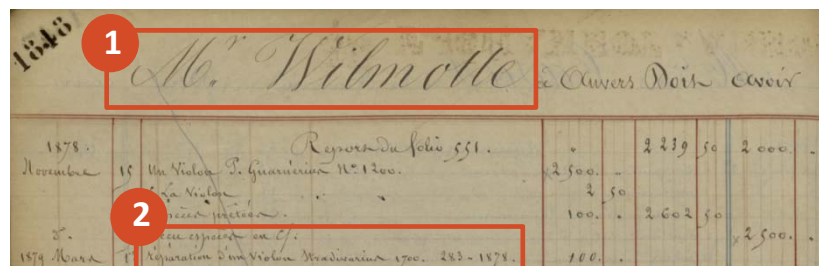 1848
1
Mr Wilmotte à Anvers Doit avoir
1878. Report du folio 551. " 2 239 50 2 000. "
Novembre 15 Un Violon P. Guarnérius No 1200. 2 500. "
La Violon 2 50
espèces prêtées. 100. " 2 602 50
2
do. en espèces en c/. 2 500. "
1879 Mars 1er réparation d'un Violon Stradivarius 1700. 283-1878. 100.